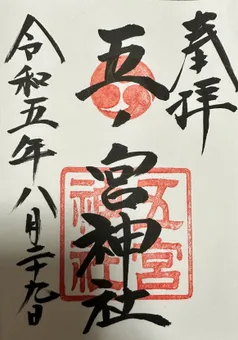 奉拝
五ノ宮神社
五宮神社
令和五年八月二十九日